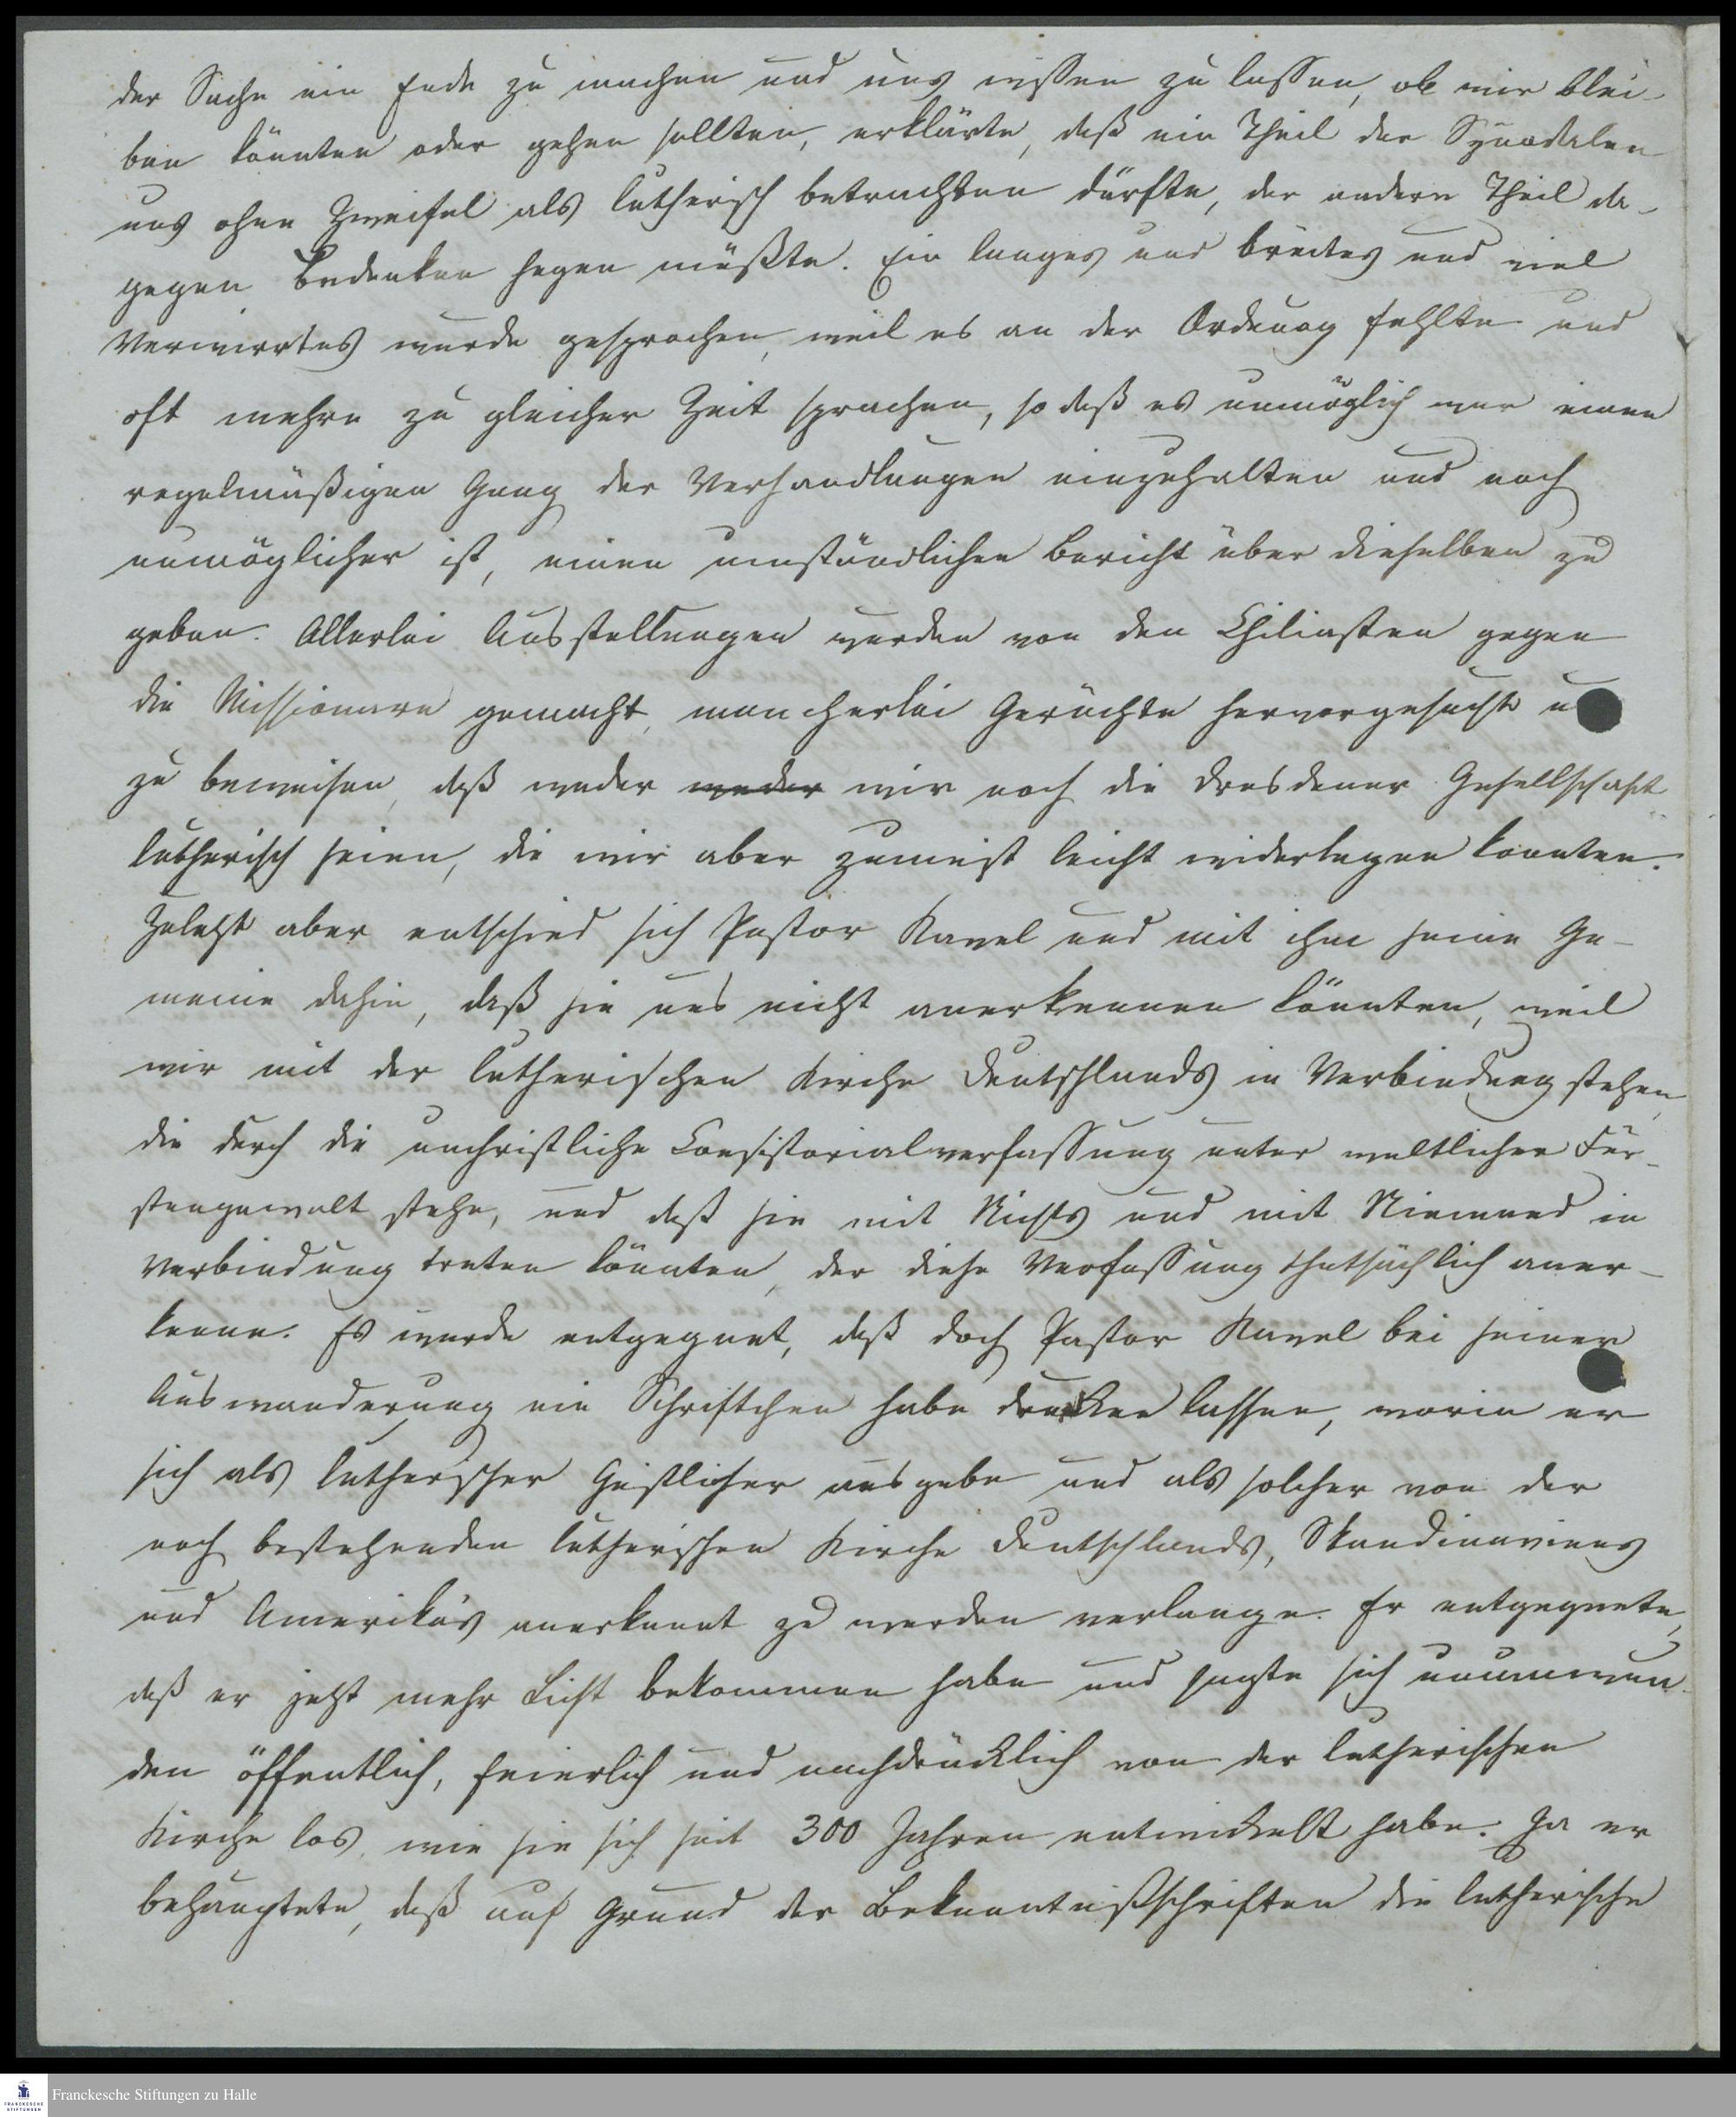 der Sache ein Ende zu machen und uns wissen zu lassen, ob wir blei-
ben könnten oder gehen sollten, erklärte, daß ein Theil der Synodalen
uns ohne Zweifel als lutherisch betrachten dürfte, der andere Theil da-
gegen Bedenken hegen müßte. Ein langes und breites und viel
Verwirrtes wurde gesprochen, weil es an der Ordnung fehlte und
oft mehre zu gleicher Zeit sprachen, so daß es unmöglich war einen
regelmäßigen Gang der Verhandlungen einzuhalten und noch
unmöglicher ist, einen umständlichen Bericht über dieselben zu
geben. Allerlei Ausstellungen wurden von den Chiliasten gegen
die Missionare gemacht, mancherlei Gerüchte hervorgesucht u
zu beweisen, daß weder weder wir noch die Dresdener Gesellschaft
lutherisch seien, die wir aber zumeist leicht widerlegen konnten.
Zuletzt aber entschied sich Pastor Kavel und mit ihm seine Ge-
meine dahin, daß sie uns nicht anerkennen könnten, weil
wir mit der lutherischen Kirche Deutschlands in Verbindung stehen,
die durch die unchristliche Consistorialverfassung unter weltlicher Für-
stengewalt stehe, und daß sie mit Nichts und mit Niemand in
Verbindung treten könnten, der diese Verfassung thatsächlich aner-
kenne. Es wurde entgegnet, daß doch Pastor Kavel bei seiner
Auswanderung ein Schriftchen habe drucken lassen, worin er
sich als lutherischer Geistlicher ausgebe und als solcher von der
noch bestehenden lutherischen Kirche Deutschlands, Skandinaviens
und Amerika's anerkannt zu werden verlange. Er entgegnete,
daß er jetzt mehr Licht bekommen habe und sagte sich unumwun-
den öffentlich, feierlich und nachdrücklich von der lutherischen
Kirche los, wie sie sich seit 300 Jahren entwickelt habe. Ja er
behauptete, daß auf Grund der Bekenntnißschriften die lutherische
Franckesche Stiftungen zu Halle
FRANCKESCHE
STIFTUNGEN